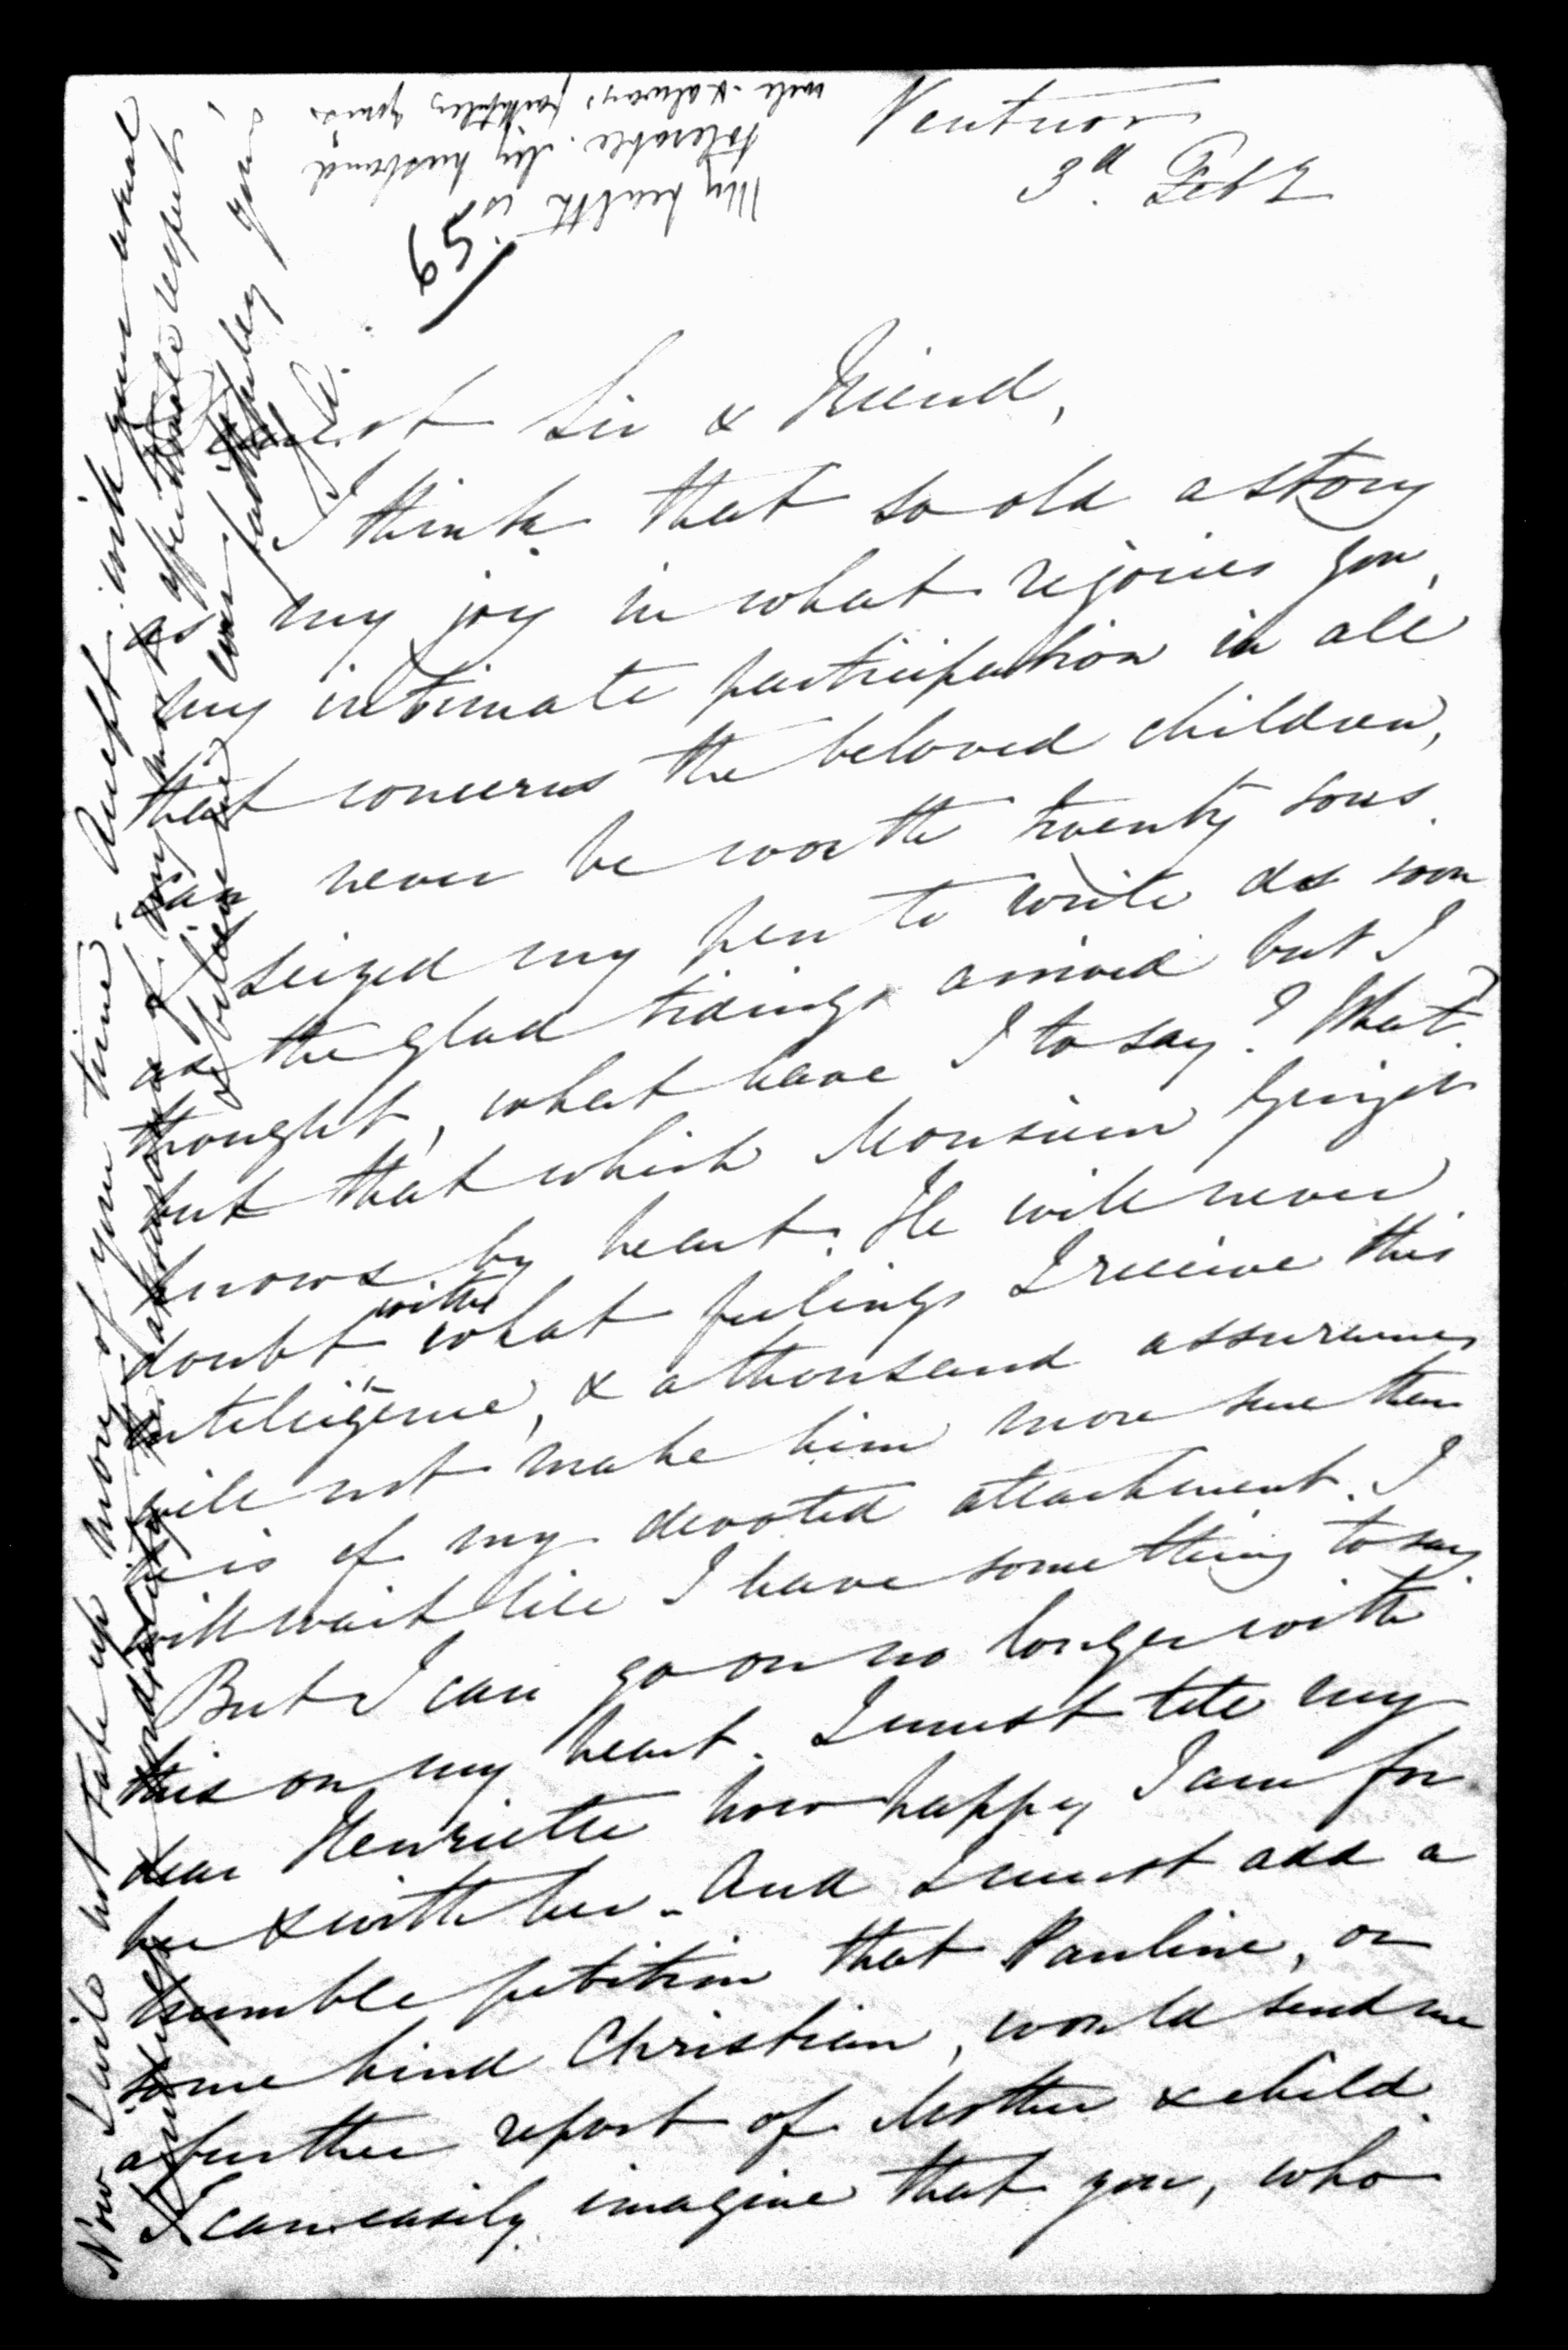 Ventnor
3d. Feby
65
Dearest Sir & Friend,
I think that so old a story
as my joy in what rejoices you,
my intimate participation in all
that concerns the beloved children,
can never be worth twenty sous.
I seized my pen to write as soon
as the glad tidings arrived but I
thought, what have I to say? What
but that which Monsieur Guizot
knows by heart. He will never
doubt with what feelings I receive this
intelligence, & a thousand assurances
will not make him more sure than
he is of my devoted attachment. I
will wait till I have something to say.
But I can go on no longer with
this on my heart. I must tell my
dear Henriette how happy I am for
her & with her. And I must add a
humble petition that Pauline, or
some kind Christian, would send me
a further report of Mother & child.
I can easily imagine that you, who
Now I will not take up more of your time. Accept with your usual
indulgence the assurance of my affectionate respect
& believe me ever faithfully yours,
My health is
tolerable. My husband
well & always faithfully yours